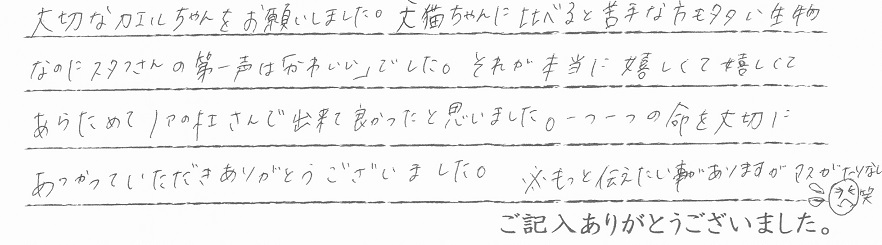 大切なカエルちゃんをお願いしました。犬猫ちゃんに比べると苦手な方も多い生物
なのにスタッフさんの第一声は「かわいい」でした。それが本当に嬉しくて嬉しくて
あらためてノアの杜さんで出来て良かったと思いました。一つ一つの命を大切に
あつかっていただきありがとうございました。 ※もっと伝えたい事がありますがマスがたりない
笑
ご記入ありがとうございました。